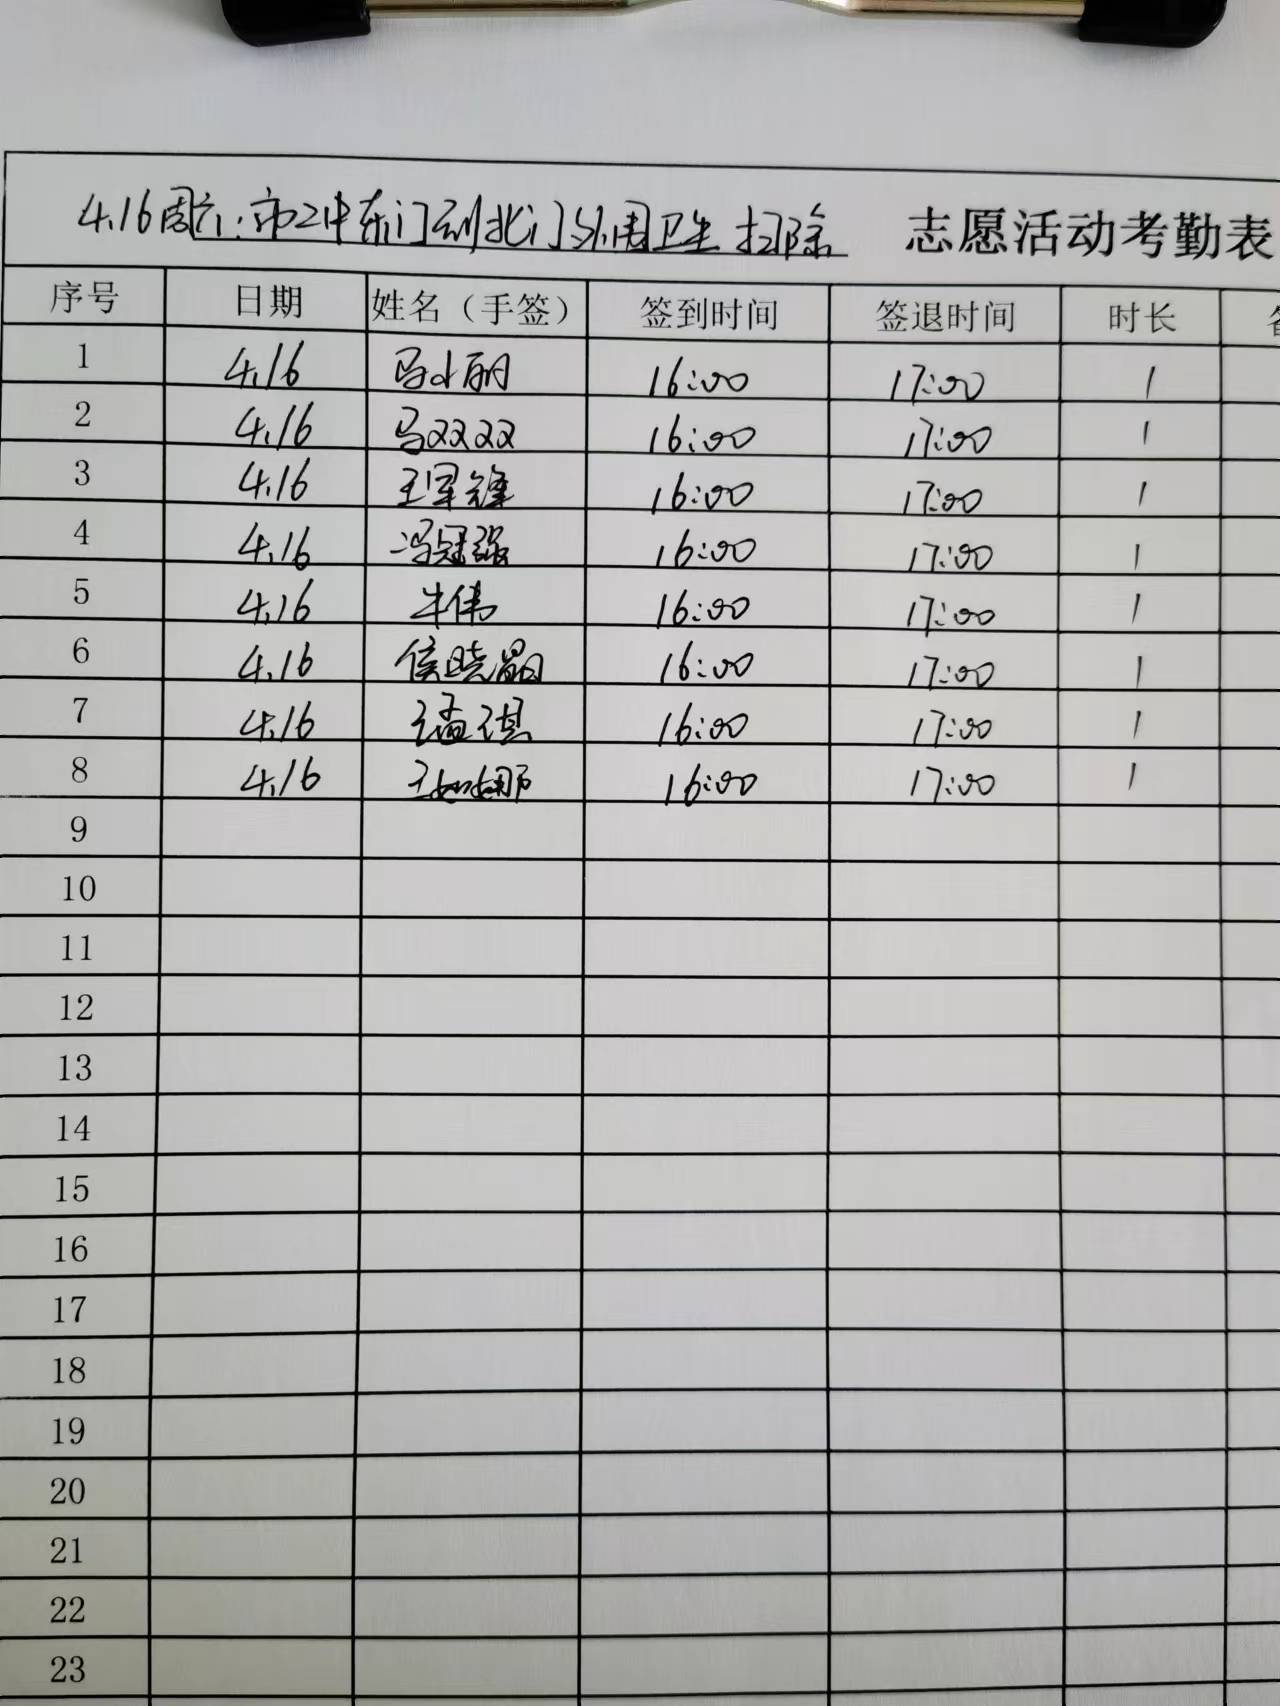 4.16周六.市2中东门到北门外围卫生扫除 志愿活动考勤表
序号 日期 姓名（手签） 签到时间 签退时间 时长
1 4.16 马小丽 16:00 17:00 1
2 4.16 马双双 16:00 17:00 1
3 4.16 王军锋 16:00 17:00 1
4 4.16 冯冠强 16:00 17:00 1
5 4.16 牛伟 16:00 17:00 1
6 4.16 侯晓晶 16:00 17:00 1
7 4.16 王孟琪 16:00 17:00 1
8 4.16 王娜娜 16:00 17:00 1
9
10
11
12
13
14
15
16
17
18
19
20
21
22
23